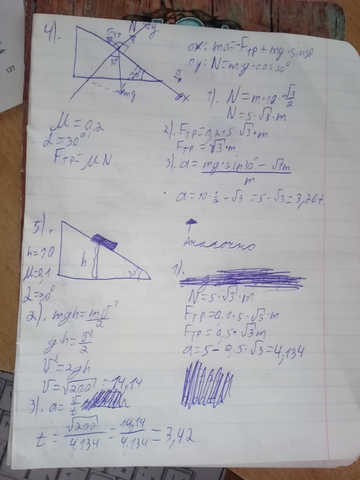 4).
Fтр N y
mg 30° x
ox: ma = -Fтр + mg · sinα
oy: N = mg · cos30°
μ = 0,2
α = 30°
Fтр = μN
1). N = m · 10 · √3/2
N = 5 · √3 · m
2). Fтр = 0,2 · 5 · √3 · m
Fтр = √3 · m
3). a = (mg · sin30° - √3m)/m
a = 10 · 1/2 - √3 = 5 - √3 = 3,267
5).
h = 10
μ = 0,1
α = 30°
h 30°
2). mgh = mv²/2
gh = v²/2
v² = 2gh
v = √200 = 14,14
3). a = v/t
t = √200/4.134 = 14,14/4.134 = 3,42
1).
N = 5 · √3 · m
Fтр = 0.1 · 5 · √3 · m
Fтр = 0,5 · √3 · m
a = 5 - 0,5 · √3 = 4,134
127